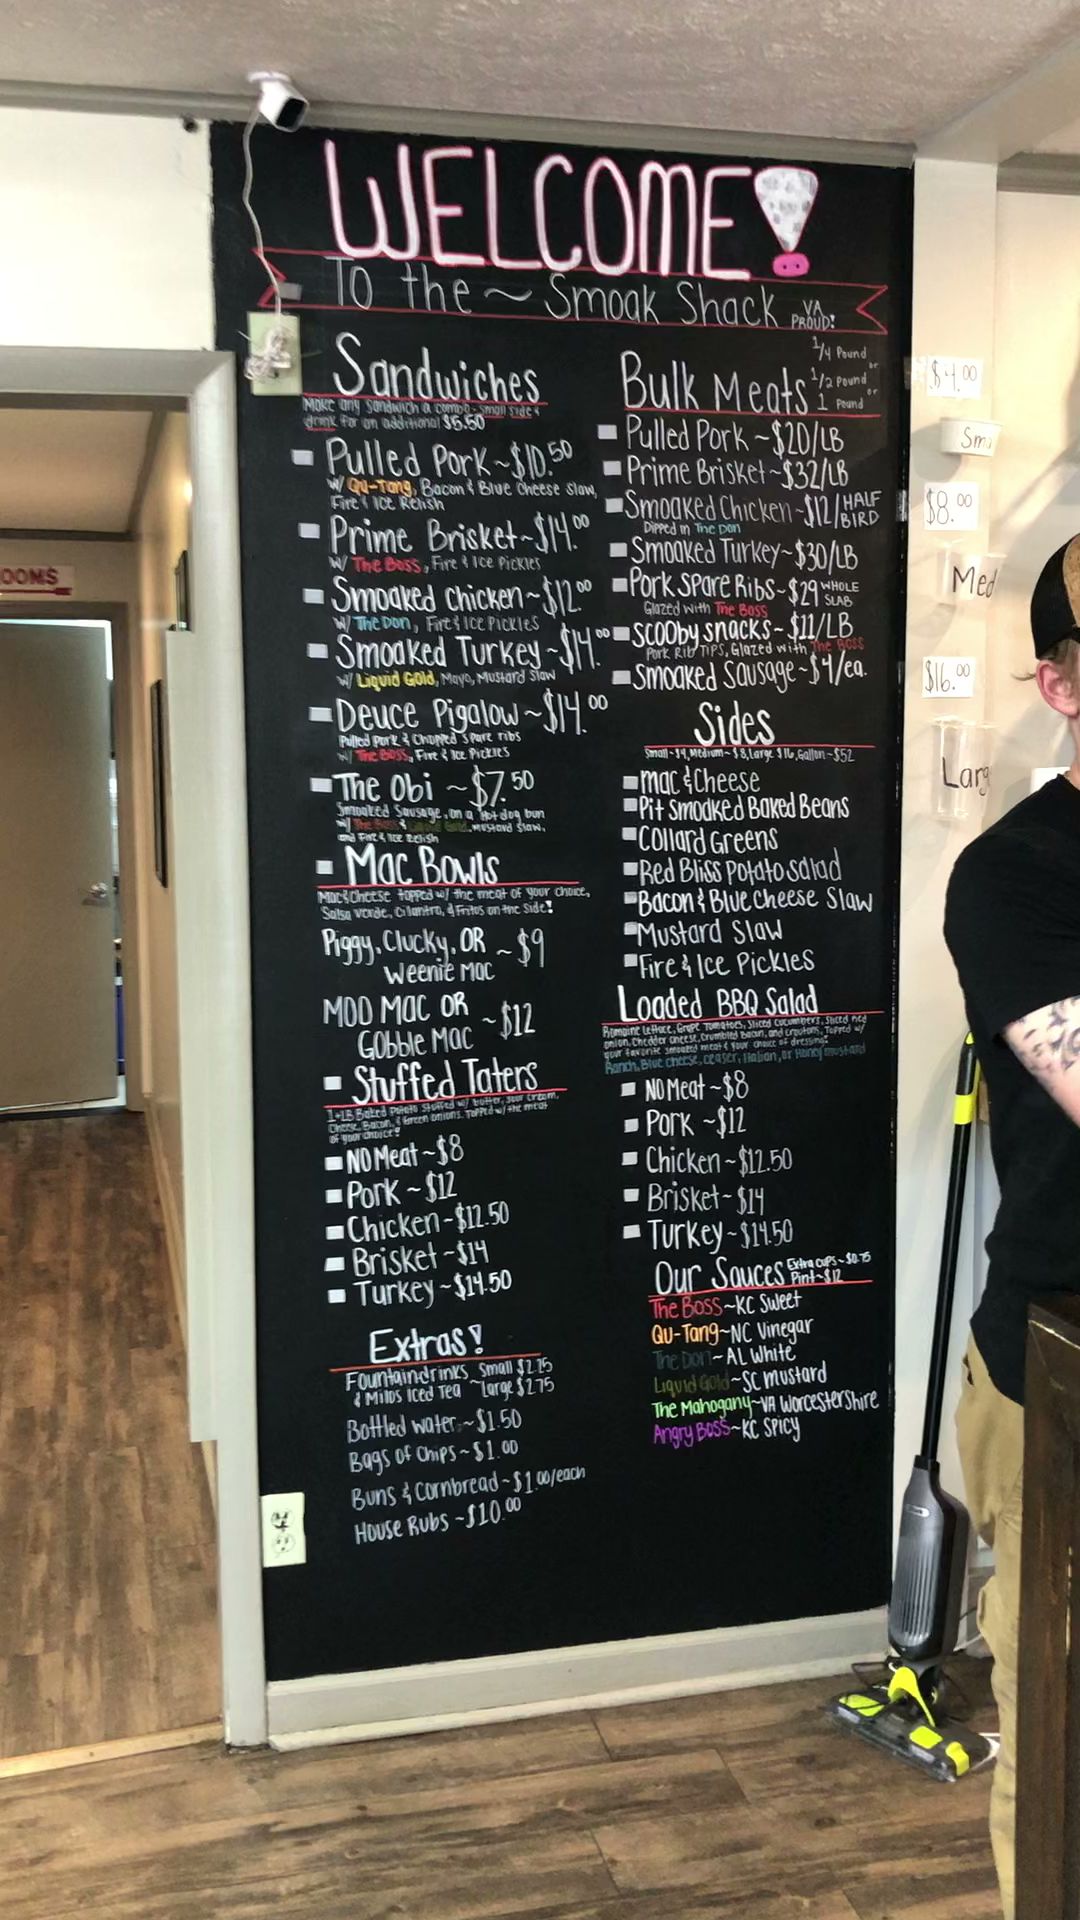 WELCOME!
To the ~ Smoak Shack VA PROUD!
Sandwiches
Make any sandwich a combo - small side &
drink for an additional $5.50
Pulled Pork ~ $10.50
w/ Qu-Tang, Bacon & Blue Cheese Slaw,
Fire & Ice Relish
Prime Brisket ~ $14.00
w/ The Boss, Fire & Ice Pickles
Smoaked Chicken ~ $12.00
w/ The Don, Fire & Ice Pickles
Smoaked Turkey ~ $14.00
w/ Liquid Gold, Mayo, Mustard Slaw
Deuce Pigalow ~ $14.00
Pulled Pork & Chopped Spare ribs
w/ The Boss, Fire & Ice Pickles
The Obi ~ $7.50
Smoaked Sausage, on a Hot dog bun
w/ The Boss & Liquid Gold, mustard slaw,
and Fire & Ice Relish
Mac Bowls
Mac & Cheese topped w/ the meat of your choice,
Salsa verde, Cilantro, & Fritos on the Side!
Piggy, Clucky, OR
Weenie Mac ~ $9
MOO MAC OR
GObble MAC ~ $12
Stuffed Taters
1+LB Baked Potato Stuffed w/ butter, sour cream,
Cheese, Bacon, & Green onions. Topped w/ the meat
of your choice!
NO Meat ~ $8
Pork ~ $12
Chicken ~ $12.50
Brisket ~ $14
Turkey ~ $14.50
Extras!
Fountain drinks Small $2.25
& Milos Iced Tea ~ large $2.75
Bottled water ~ $1.50
Bags of Chips ~ $1.00
Buns & Cornbread ~ $1.00/each
House Rubs ~ $10.00
Bulk Meats
1/4 Pound or
1/2 Pound or
1 Pound
Pulled Pork ~ $20/LB
Prime Brisket ~ $32/LB
Smoaked Chicken ~ $12/HALF BIRD
Dipped in The Don
Smoaked Turkey ~ $30/LB
Pork Spare Ribs ~ $29 WHOLE SLAB
Glazed with The Boss
Scooby snacks ~ $11/LB
Pork Rib TIPS, Glazed with The Boss
Smoaked Sausage ~ $4/ea.
Sides
Small ~ $4, Medium ~ $8, Large $16, Gallon ~ $52
Mac & Cheese
Pit Smoaked Baked Beans
Collard Greens
Red Bliss Potato Salad
Bacon & Blue Cheese Slaw
Mustard Slaw
Fire & Ice Pickles
Loaded BBQ Salad
Romaine Lettuce, Grape Tomatoes, Sliced Cucumbers, Sliced red
onion, Cheddar cheese, Crumbled Bacon, and croutons, Topped w/
your favorite smoaked meat & your choice of dressing!
Ranch, Blue cheese, ceaser, Italian, or Honey mustard
NO Meat ~ $8
Pork ~ $12
Chicken ~ $12.50
Brisket ~ $14
Turkey ~ $14.50
Our Sauces Extra cups ~ $0.75
Pint ~ $12
The Boss ~ KC Sweet
Qu-Tang ~ NC Vinegar
The Don ~ AL White
Liquid Gold ~ SC mustard
The Mahogany ~ VA Worcestershire
Angry Boss ~ KC Spicy
$4.00
Sma
$8.00
Med
$16.00
Larg
OOMS